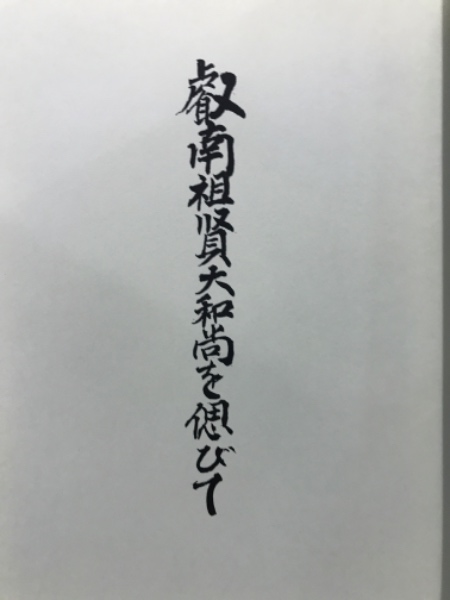 叡南祖賢大和尚を偲びて